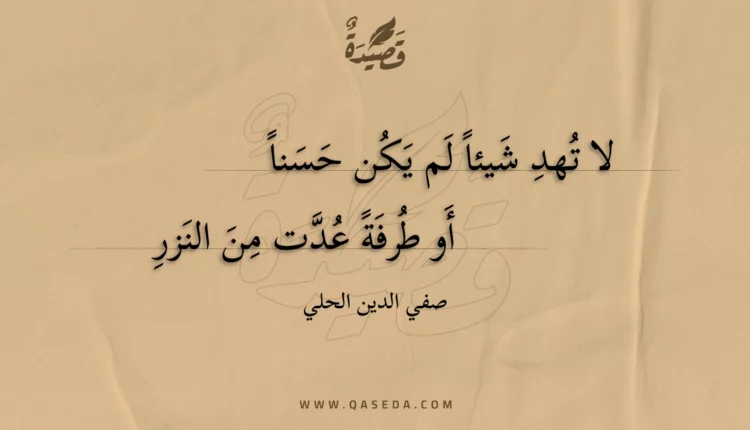 قَصِيدَةٌ
لا تُهدِ شَيئاً لَم يَكُن حَسَناً
أَو طُرفَةً عُدَّت مِنَ النَزرِ
صفي الدين الحلي
WWW.QASEDA.COM